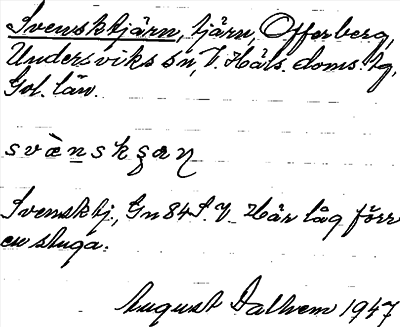 Svensktjärn, tjärn, Offerberg,
Undersviks sn, V. Häls. doms. tg,
Gvl. län.
svènskʂaɳ
Svensktj., Gn 84 S.V. Här låg förr
en stuga.
August Dalhem 1947